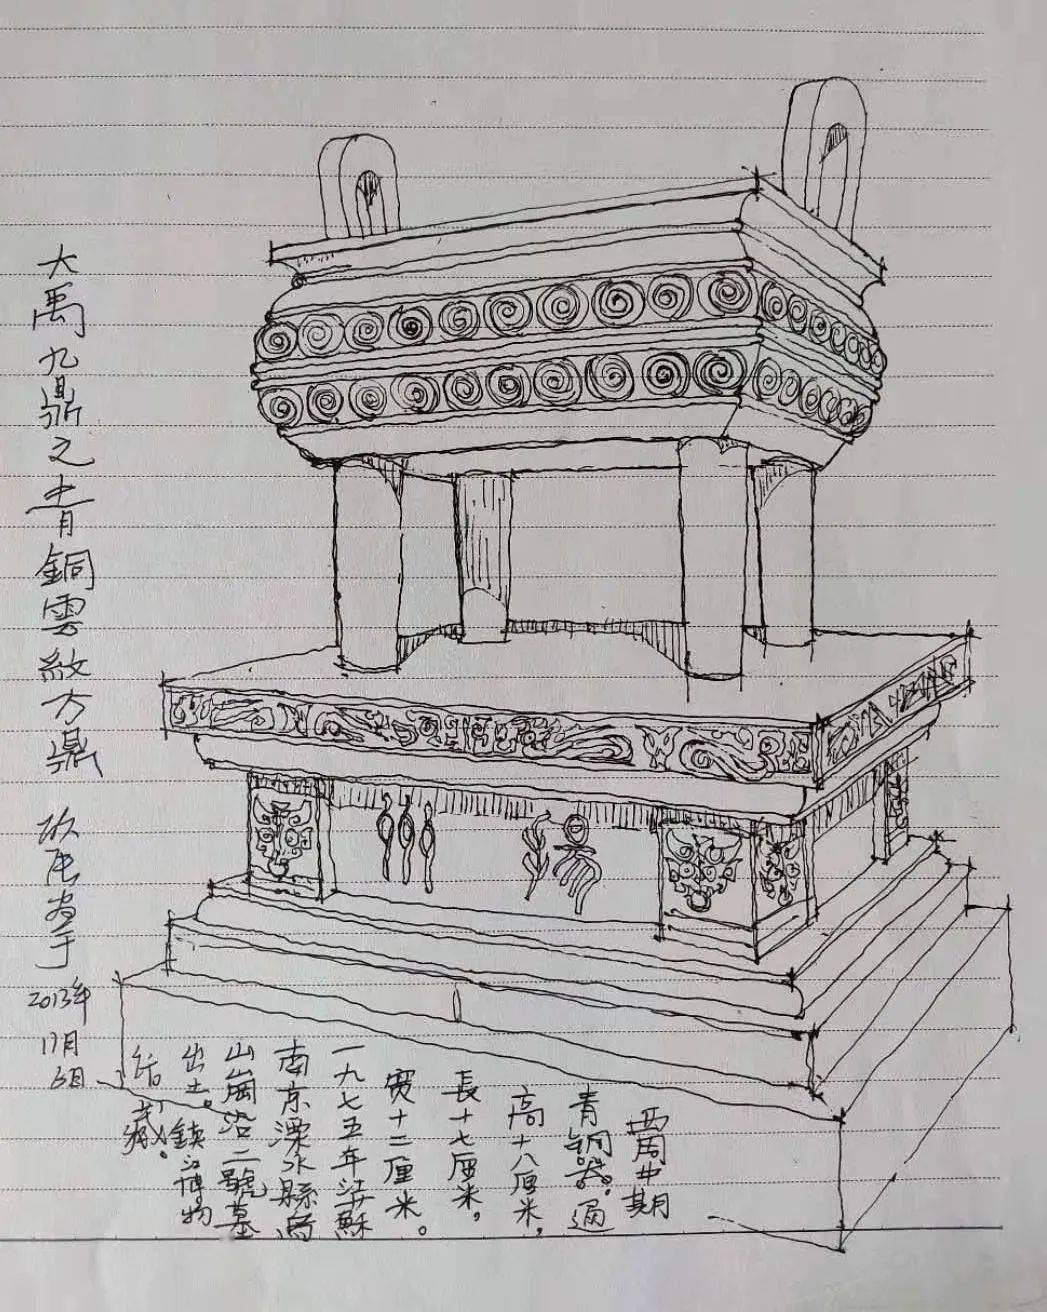 大禹九鼎之青銅雲紋方鼎
畫于
2013年
11月
6日
西周中期
青铜器。通
高十八厘米，
長十七厘米，
寬十二厘米。
一九七五年江蘇
南京溧水縣烏
山崗沿二號墓
出土。鎮江博物
館藏。